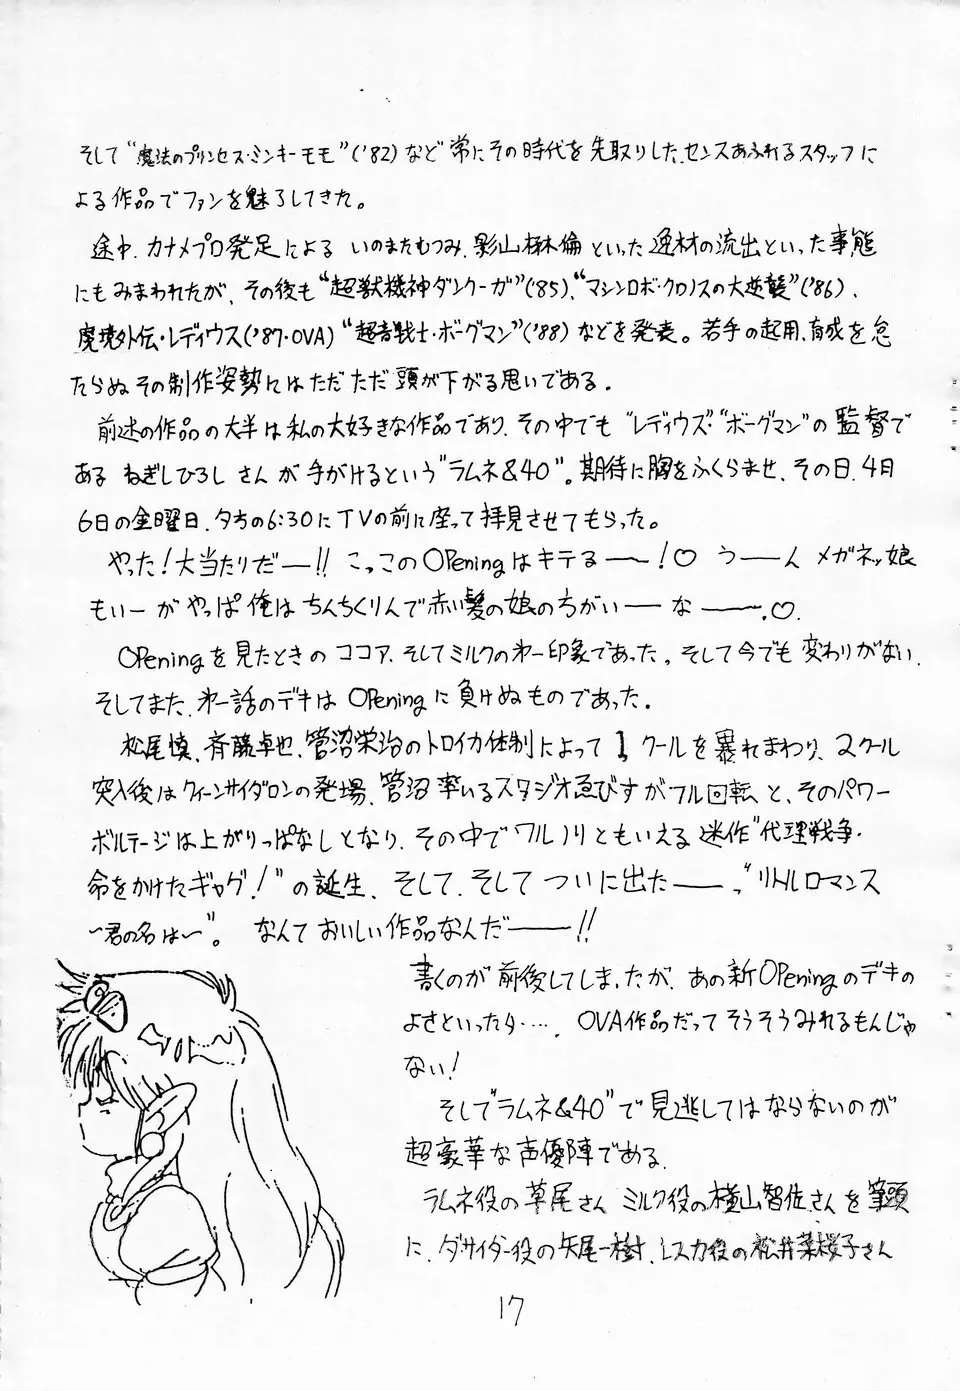 そして“魔法のプリンセス・ミンキーモモ”('82)など常にその時代を先取りした、センスあふれるスタッフに
よる作品でファンを魅了してきた。
途中、カナメプロ発足による いのまたむつみ、影山楙倫といった逸材の流出といった事態
にもみまわれたが、その後も“超獣機神ダンクーガ”('85)、“マシンロボ・クロノスの大逆襲”('86)、
魔境外伝・レディウス('87・OVA)“超音戦士・ボーグマン”('88)などを発表。若手の起用、育成を怠
たらぬその制作姿勢にはただただ頭が下がる思いである。
前述の作品の大半は私の大好きな作品であり、その中でも“レディウズ”“ボーグマン”の監督で
ある ねぎしひろし さん が 手がけるという“ラムネ&40”。期待に胸をふくらませ、その日、4月
6日の金曜日、夕方の6:30にTVの前に座って拝見させてもらった。
やった!大当たりだー!! こっこのOPeningはキテるー〜!♡ うーん メガネッ娘
もいーが やっぱ俺はちんちくりんで赤い髪の娘の方がいーなー〜.♡.
OPeningを見たときのココア、そしてミルクの第一印象であった。そして今でも変わりがない.
そしてまた、第一話のデキは OPeningに負けぬものであった。
松尾慎、斉藤卓也、管沼栄治のトロイカ体制によって1クールを暴れまわり、2クール
突入後はクィーンサイダロンの発場、管沼率いるスタジオゑびすがフル回転と、そのパワー
ボルテージは上がりっぱなしとなり、その中でワルノリともいえる迷作“代理戦争・
命をかけたギャグ!”の誕生、そして、そして ついに出たー〜“リトルロマンス
〜君の名は〜”。 なんておいしい作品なんだー!!
書くのが前後してしまったが、あの新OPeningのデキの
よさといったら‥‥. OVA作品だってそうそうみれるもんじゃ
ない!
そして“ラムネ&40”で見逃してはならないのが
超豪華な声優陣である.
ラムネ役の草尾さん ミルク役の横山智佐さんを筆頭
に、ダ・サイダー役の矢尾一樹、レスカ役の松井菜桜子さん
17